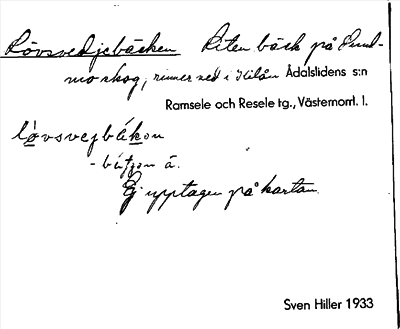 Lövsvedjebäcken Liten bäck på Sund-
moskog, rinner ned i Kilån Ådalslidens s:n
Ramsele och Resele tg., Västernorrl. l.
lövsvejbäkon
- bäţţen ä.
Ej upptagen på kartan.
Sven Hiller 1933